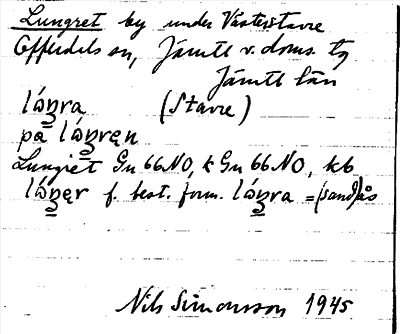 Lungret by under Västerstavre
Offerdals sn, Jämtl v. doms. tg
Jämtl län
lώŋra (Stavre)
på lώŋręn
Lungret Gu 66 NO, k Gu 66 NO, kb
lώŋęr f. best. form. lώŋra = (sand)ås
Nils Simonsson 1945